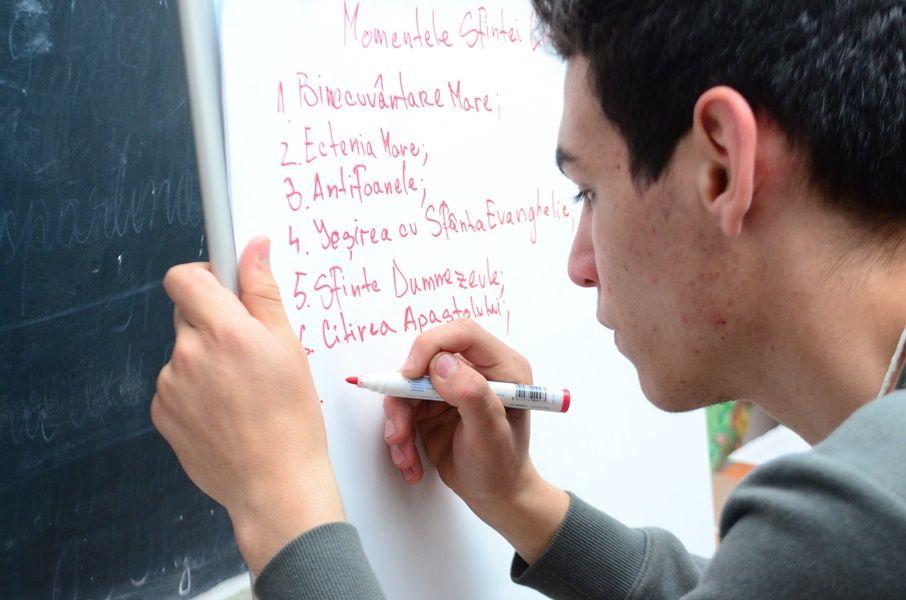 Momentele Sfintei
1 Binecuvântare Mare;
2. Ectenia Mare;
3. Antifoanele;
4. Ieșirea cu Sfânta Evanghelie;
5. Sfinte Dumnezeule;
6. Citirea Apostolului;